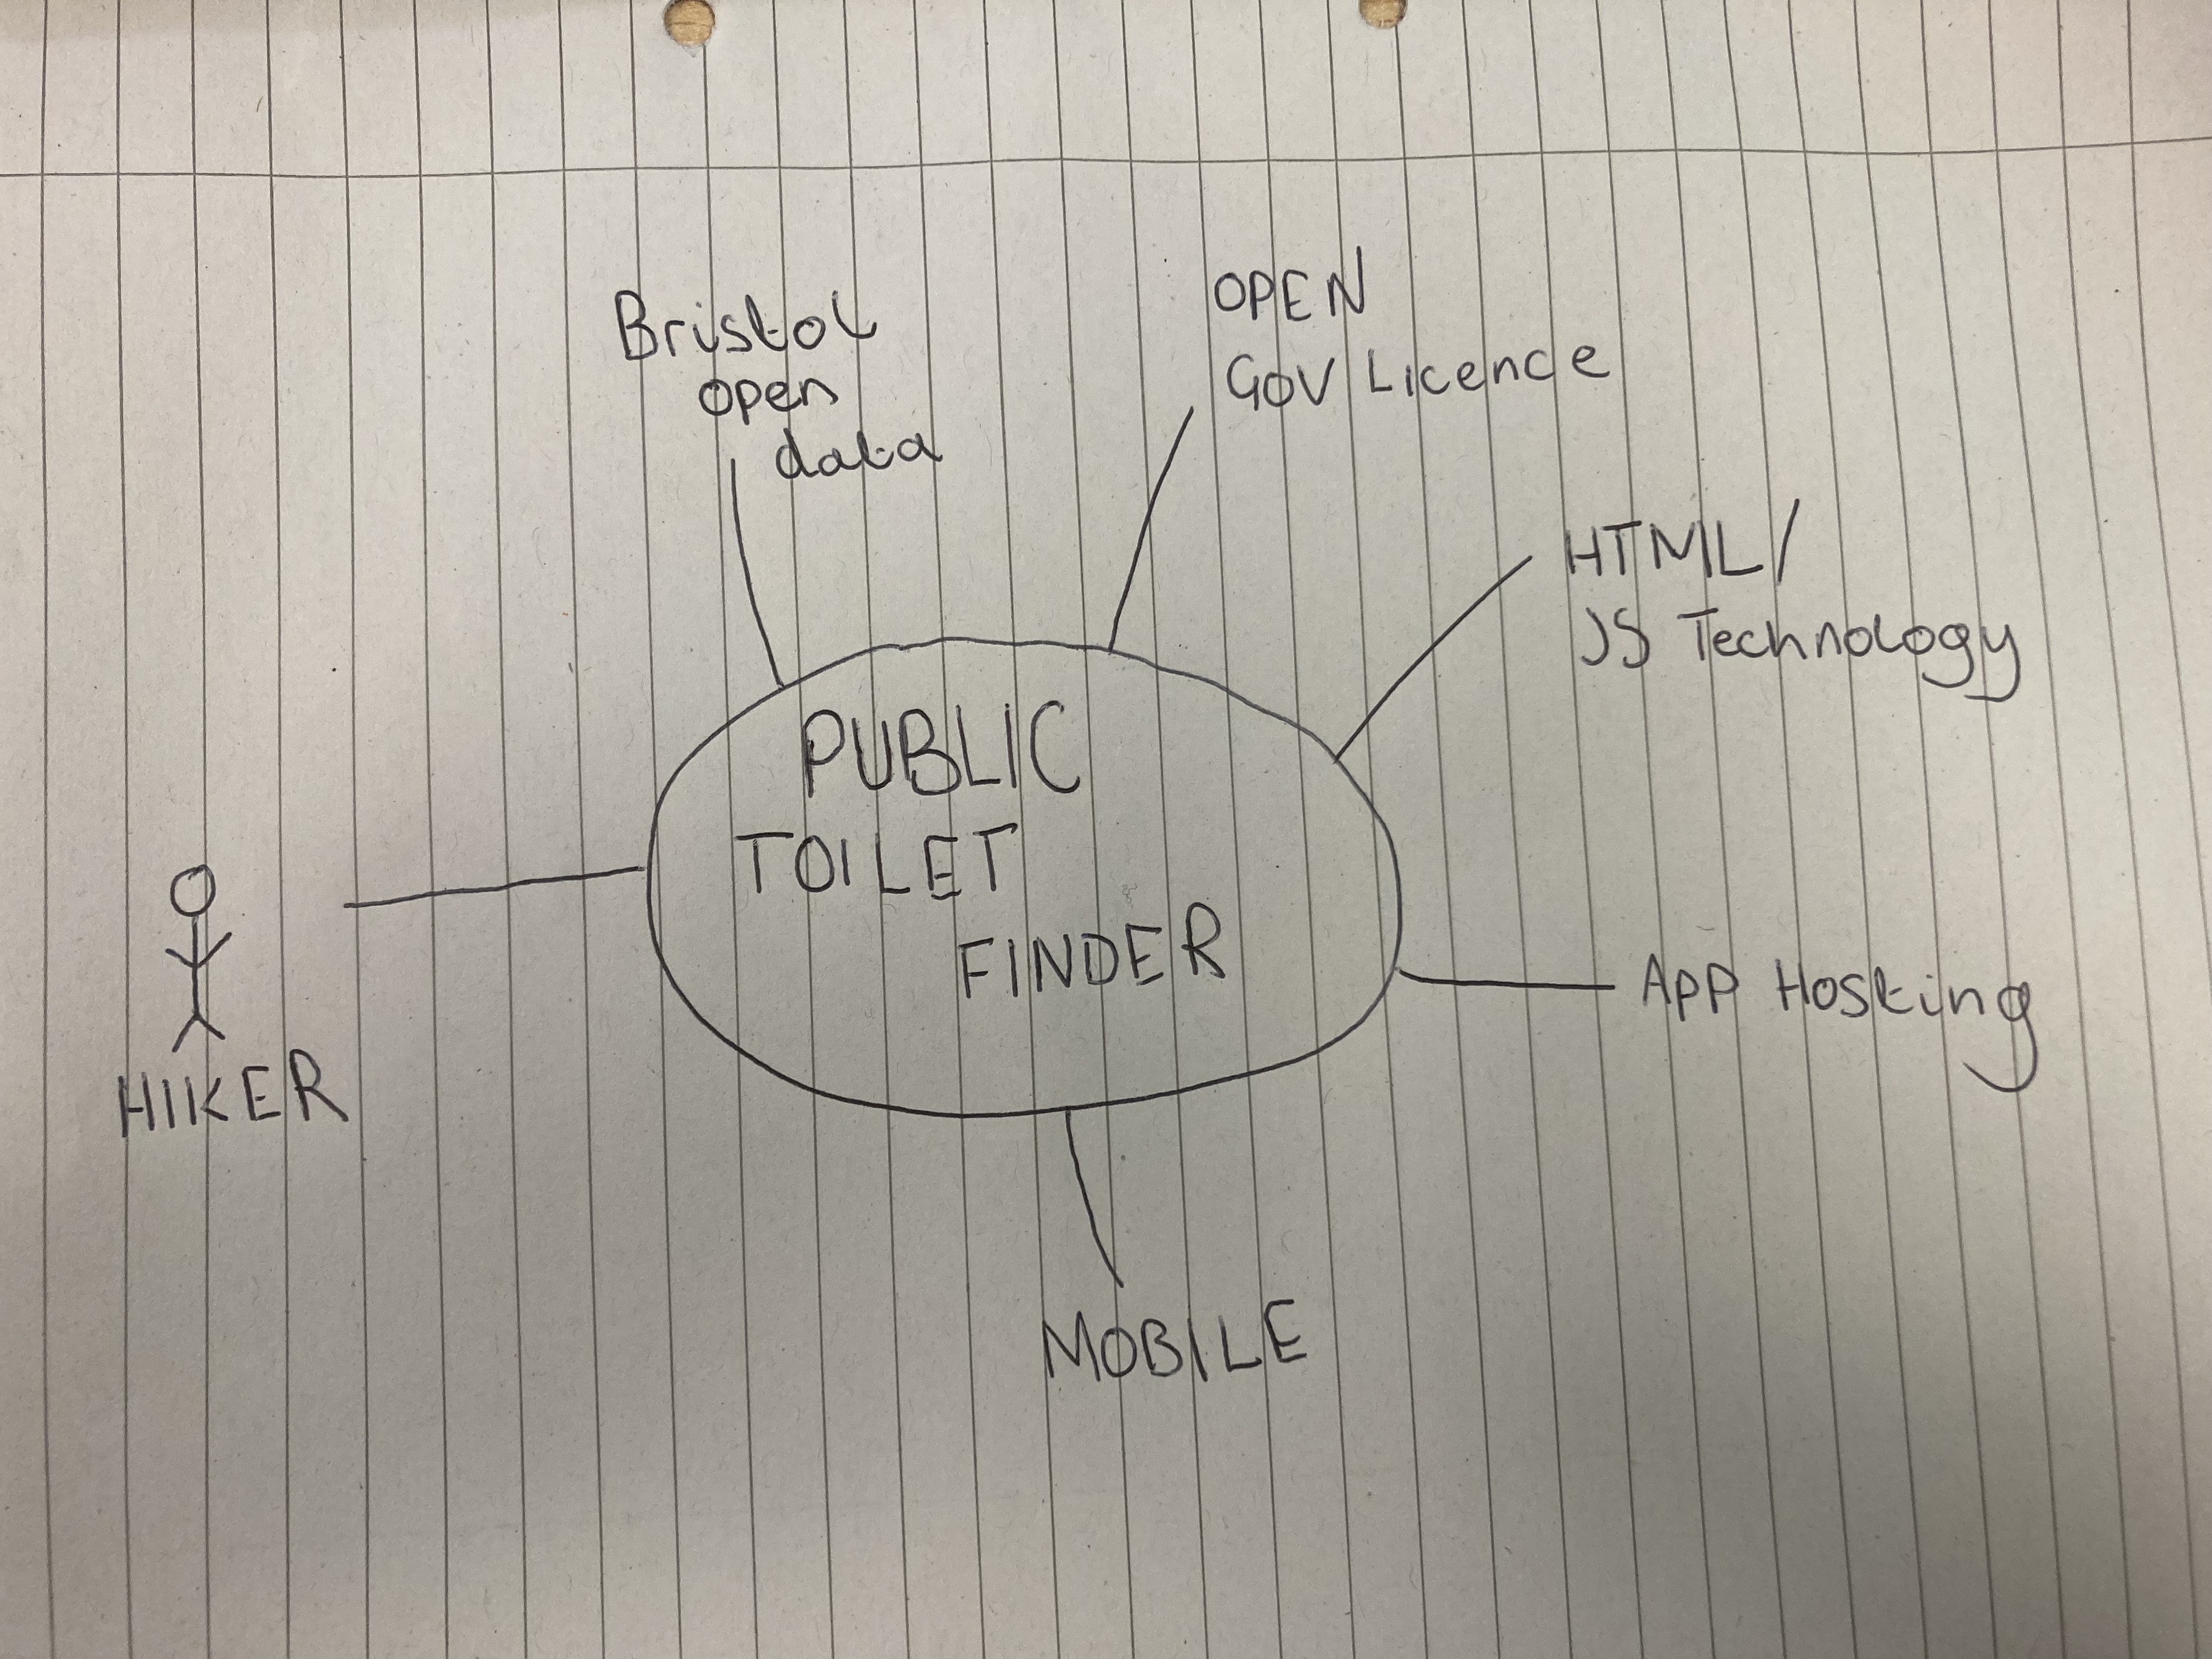 Bristol
open
data
OPEN
GOV Licence
HTML/
JS Technology
PUBLIC
TOILET
FINDER
HIKER
APP Hosting
MOBILE